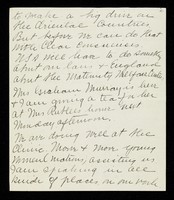 to make a big dive in
the Oriental Countries
But before we can do that
with clear consciences
We'd well have to do something
about our laws & England
about the Maternity
Mrs Graham Murray is here
& I am giving a tea for her
at Mrs house next
Monday afternoon.
We are doing well at the
Clinic More & more young
Women Mating assisting us
I am speaking in all
kinds of places in our work